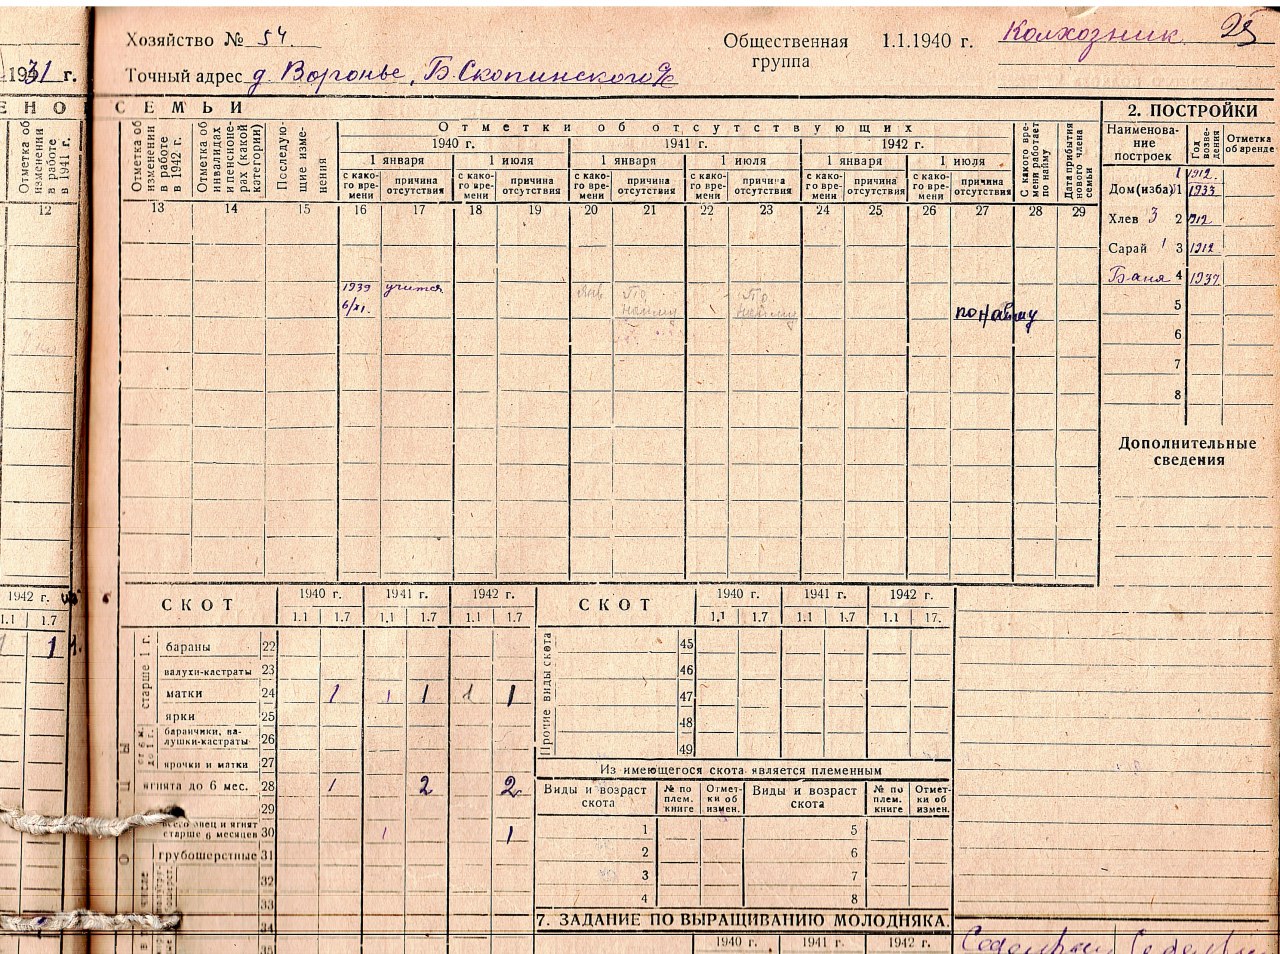 Хозяйство № 54.
Общественная группа 1.1.1940 г. Колхозник 25
31 г.
Точный адрес д. Воронье, Б. Скопинского
ЕНО СЕМЬИ
2. ПОСТРОЙКИ
Отметка об изменении в работе в 1941 г.
Отметка об изменении в работе в 1942 г.
Отметка об инвалидах и пенсионерах (какой категории)
Последующие изменения
Отметки об отсутствующих
1940 г. 1941 г. 1942 г.
1 января 1 июля 1 января 1 июля 1 января 1 июля
с како-го вре-мени причина отсутствия с како-го вре-мени причина отсутствия с како-го вре-мени причина отсутствия с како-го вре-мени причина отсутствия с како-го вре-мени причина отсутствия с како-го вре-мени причина отсутствия
С какого вре-мени работает по найму
Дата прибытия нового члена семьи
Наименова-ние построек Год возве-дения Отметка об аренде
12 13 14 15 16 17 18 19 20 21 22 23 24 25 26 27 28 29
1 1912.
Дом(изба) 1 1933
Хлев 3 2 1912
Сарай 1 3 1912
Баня 4 1937
5
6
7
8
1939 учится
6/XI.
Янв По найму По найму
по найму
Дополнительные сведения
1942 г.
1.1 1.7
1
СКОТ 1940 г. 1941 г. 1942 г.
1.1 1.7 1.1 1.7 1.1 1.7
старше 1 г.
бараны 22
валухи-кастраты 23
матки 24 1 1 1 1 1
ярки 25
от 6 м. до 1 г.
баранчики, ва-лушки-кастраты 26
ярочки и матки 27
ягнята до 6 мес. 28 1 2 2
29
всего овец и ягнят старше 6 месяцев 30 1 1
грубошерстные 31
32
33
34
35
СКОТ 1940 г. 1941 г. 1942 г.
1.1 1.7 1.1 1.7 1.1 17.
Прочие виды скота
45
46
47
48
49
Из имеющегося скота является племенным
Виды и возраст скота № по плем. книге Отмет-ки об измен. Виды и возраст скота № по плем. книге Отмет-ки об измен.
1 5
2 6
3 7
4 8
7. ЗАДАНИЕ ПО ВЫРАЩИВАНИЮ МОЛОДНЯКА
1940 г. 1941 г. 1942 г.